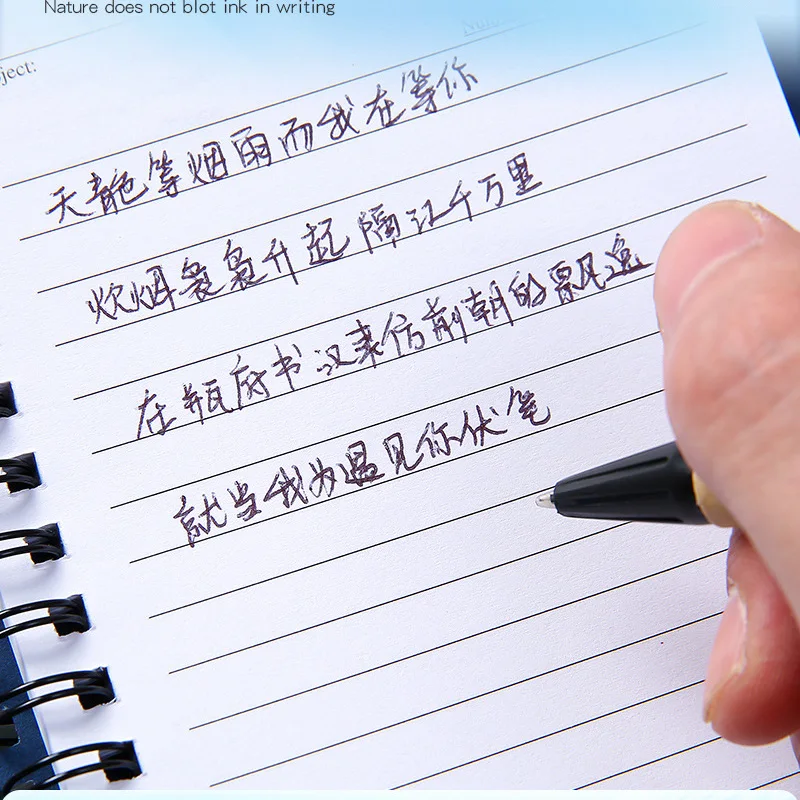 Nature does not blot ink in writing
ject:
天青色等烟雨而我在等你
炊烟袅袅升起隔江千万里
在瓶底书汉隶仿前朝的飘逸
就当我为遇见你伏笔